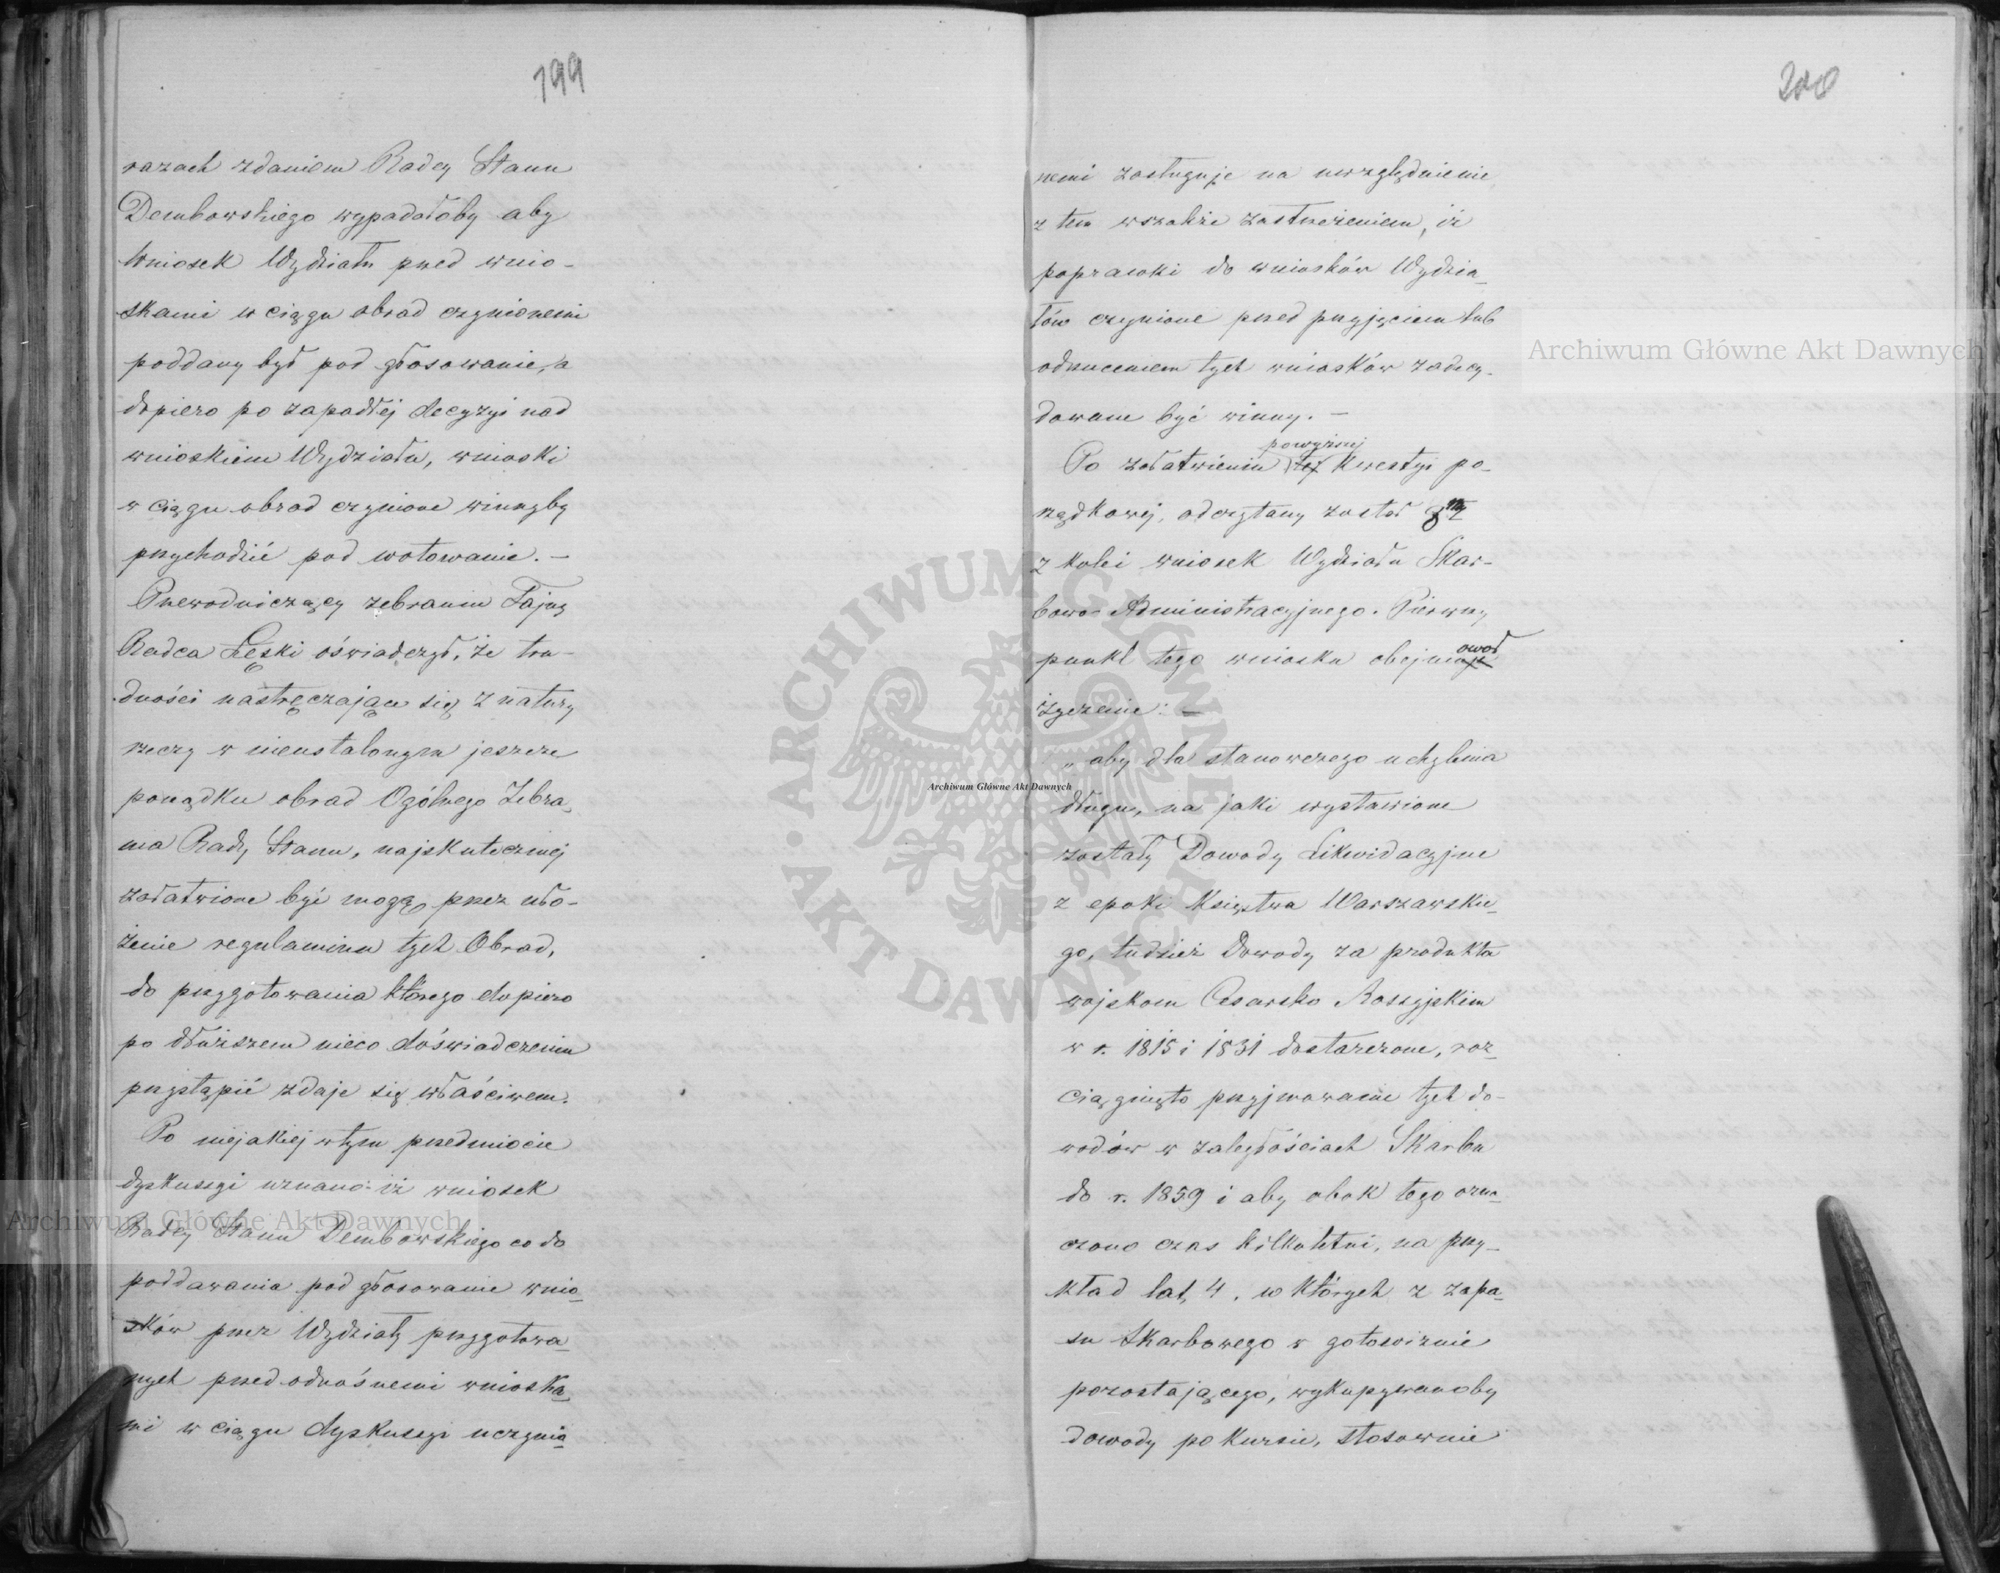 199
razach zdaniem Radcy Stanu
Dembowskiego wypadałoby aby
wniosek Wydziału przed wnio-
skami w ciągu obrad czynionemi
poddany był pod głosowanie, a
dopiero po zapadłej decyzyi nad
wnioskiem Wydziału, wnioski
w ciągu obrad czynione winnyby
przychodzić pod wotowanie. —
Przewodniczący zebraniu Tajny
Radca Łęski oświadczył, że tru-
dności nastręczające się z natury
rzeczy w nieustalonym jeszcze
porządku obrad Ogólnego Zebra-
nia Rady Stanu, najskuteczniej
załatwione być mogą przez uło-
żenie regulaminu tych Obrad,
do przygotowania którego dopiero
po dłuższem nieco doświadczeniu
przystąpić zdaje się właściwem.
Po niejakiej w tym przedmiocie
dyskusyi uznano iż wniosek
Radcy Stanu Dembowskiego co do
poddawania pod głosowanie wnio-
sków przez Wydziały przygotowa-
nych przed odnośnemi wnioska-
mi w ciągu dyskusyi uczynio-
200
nemi zasługuje na uwzględnienie
z tem wszakże zastrzeżeniem, iż
poprawki do wniosków Wydzia-
łów czynione przed przyjęciem lub
odrzuceniem tych wniosków zadecy-
dowane być winny. —
powyższej
Po załatwieniu tej kwestyi po-
rządkowej, odczytany został 3ci
z kolei wniosek Wydziału Skar-
bowo-Administracyjnego. Pierwszy
punkt tego wniosku obejmował
życzenie: —
„aby dla stanowczego uchylenia
długu, na jaki wystawione
zostały Dowody Likwidacyjne
z epoki Księstwa Warszawskie-
go, tudzież Dowody za produkta
wojskom Cesarsko Rossyjskim
w r. 1815 i 1831 dostarczone, roz-
ciągnięto przyjmowanie tych do-
wodów w zaległościach Skarbu
do r. 1859 i aby obok tego ozna-
czono czas kilkoletni, na przy-
kład lat 4, w których z zapa-
su Skarbowego w gotowiznie
pozostającego, wykupywanoby
dowody po kursie, stosownie
Archiwum Główne Akt Dawnych
Archiwum Główne Akt Dawnych
Archiwum Główne Akt Dawnych
ARCHIWUM GŁÓWNE AKT DAWNYCH